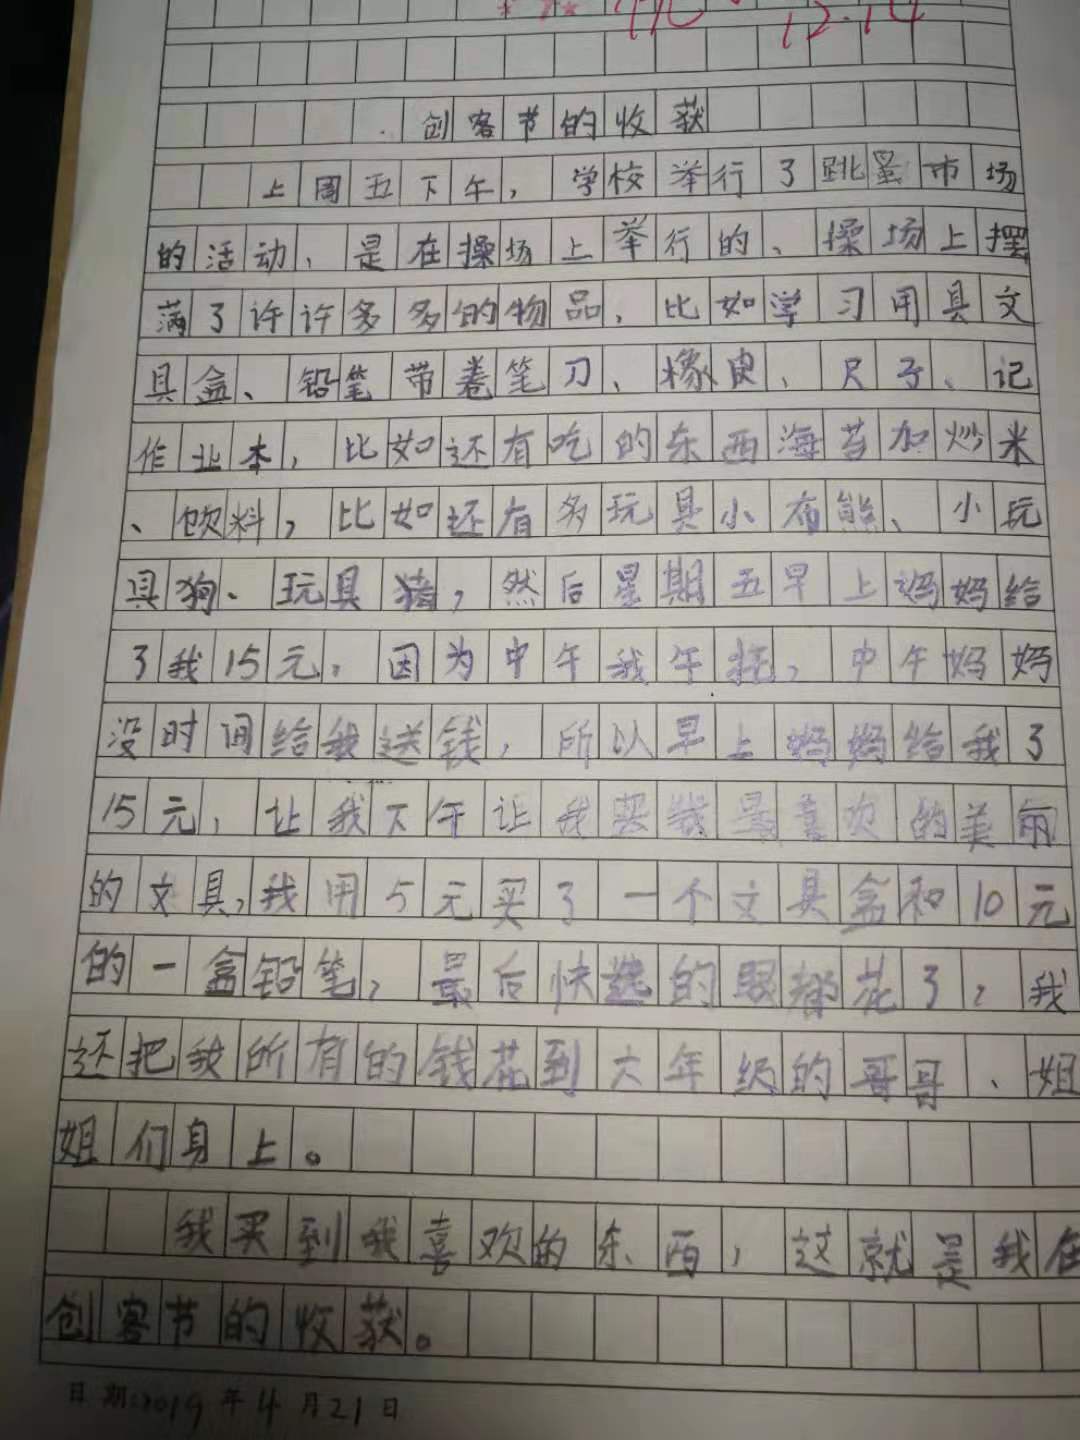 优 12.14
创客节的收获
上周五下午，学校举行了跳蚤市场
的活动、是在操场上举行的、操场上摆
满了许许多多的物品，比如学习用具文
具盒、铅笔带卷笔刀、橡皮、尺子、记
作业本，比如还有吃的东西海苔加炒米
、饮料，比如还有多玩具小布熊、小玩
具狗、玩具猪，然后星期五早上妈妈给
了我15元。因为中午我午托，中午妈妈
没时间给我送钱，所以早上妈妈给我了
15元，让我下午让我买我最喜欢的美丽
的文具，我用5元买了一个文具盒和10元
的一盒铅笔，最后快选的眼都花了，我
还把我所有的钱花到六年级的哥哥、姐
姐们身上。
我买到我喜欢的东西，这就是我在
创客节的收获。
日期:2019年4月21日